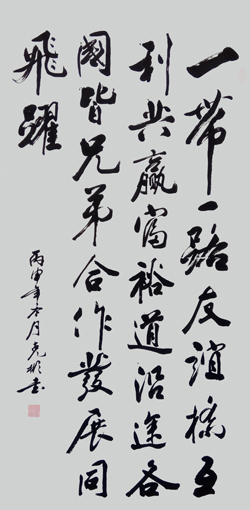 一带一路友谊桥互
利共赢富裕道沿途各
國皆兄弟合作發展同
飛躍
丙申年冬月克彬书